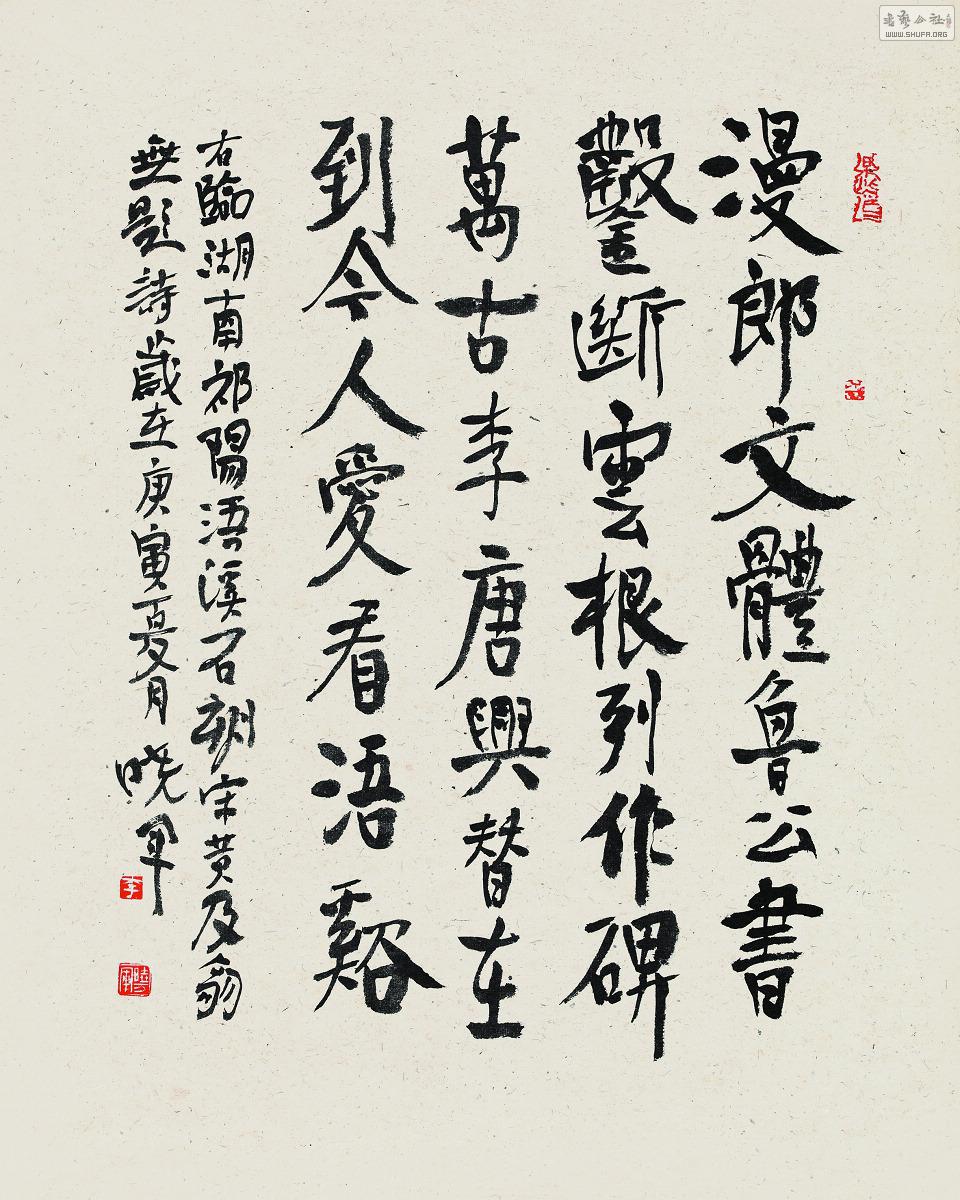 漫郎文體魯公書
鑿斷雲根列作碑
萬古李唐興替在
到今人愛看浯谿
右臨湖南祁陽浯溪石宋黄及翁
無題詩歲在庚寅夏月晓军
李
書藝公社
WWW.SHUFA.ORG